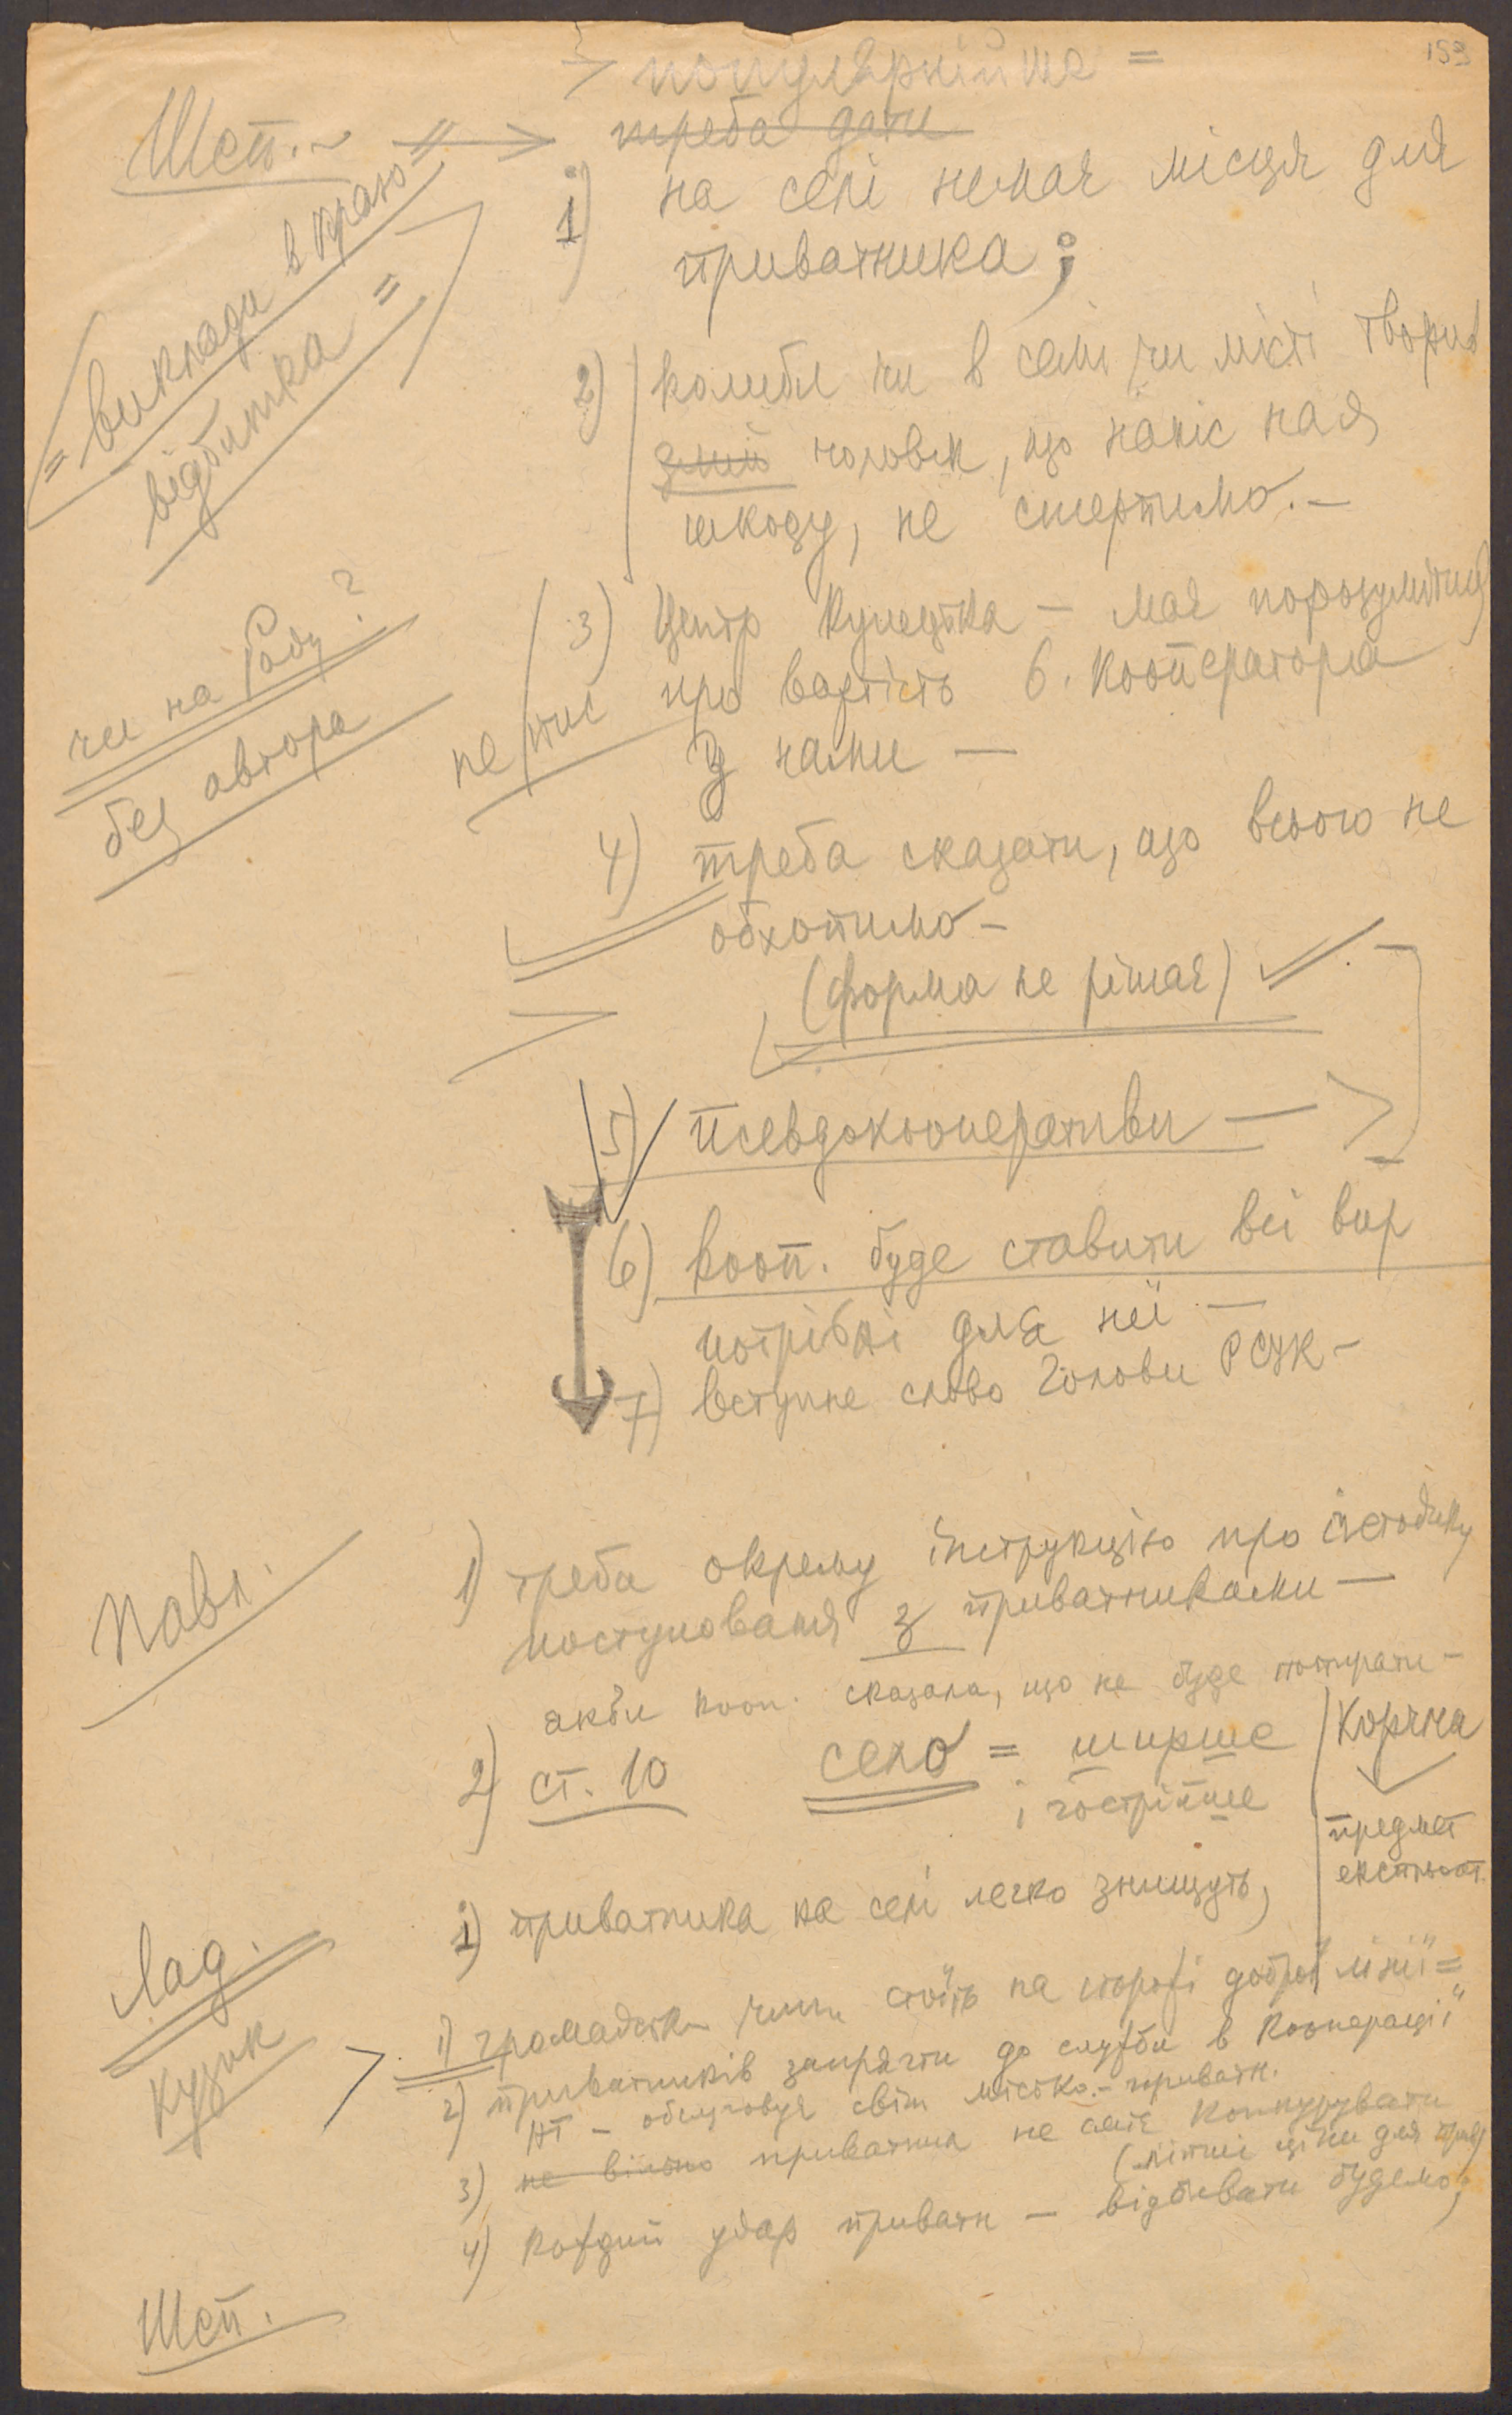 153
> популярнійше =
Шеп. → треба дати
1) на селі немає місця для
приватника;
= виклади в краю =
відбитка =
2) колиби чи в селі чи місті творив
злий чоловік, що наніс нам
шкоду, не стерпимо. –
3) Центр купецтва – має порозумітися
не
про вартість б. кооператора
з нами –
чи на Раду?
без автора
4) треба сказати, що всього не
обхопимо –
(форма не рішає)
5) псевдокооперативи –
6) кооп. буде ставити всі вир
потрібні для неї –
7) вступне слово Голови РСУК –
Павл.
1) треба окрему інструкцію про методику
поступовання з приватниками –
якби кооп. сказала, що не буде поширати –
2) ст. 10 село = ширше
і гострійше
Корчма
предмет
експлоат.
Лад.
1) приватника на селі легко знищуть,
Кузик
> 1) громадськ чин. стоїть на сторожі доброї лінії =
2) приватників запрягти до служби в кооперації"
НТ – обслуговує світ містко. – приватн.
3) не вільно приватник не сміє конкурувати
(літші ціни для прив)
4) кождий удар приватн – відбивати будемо,
Шеп.